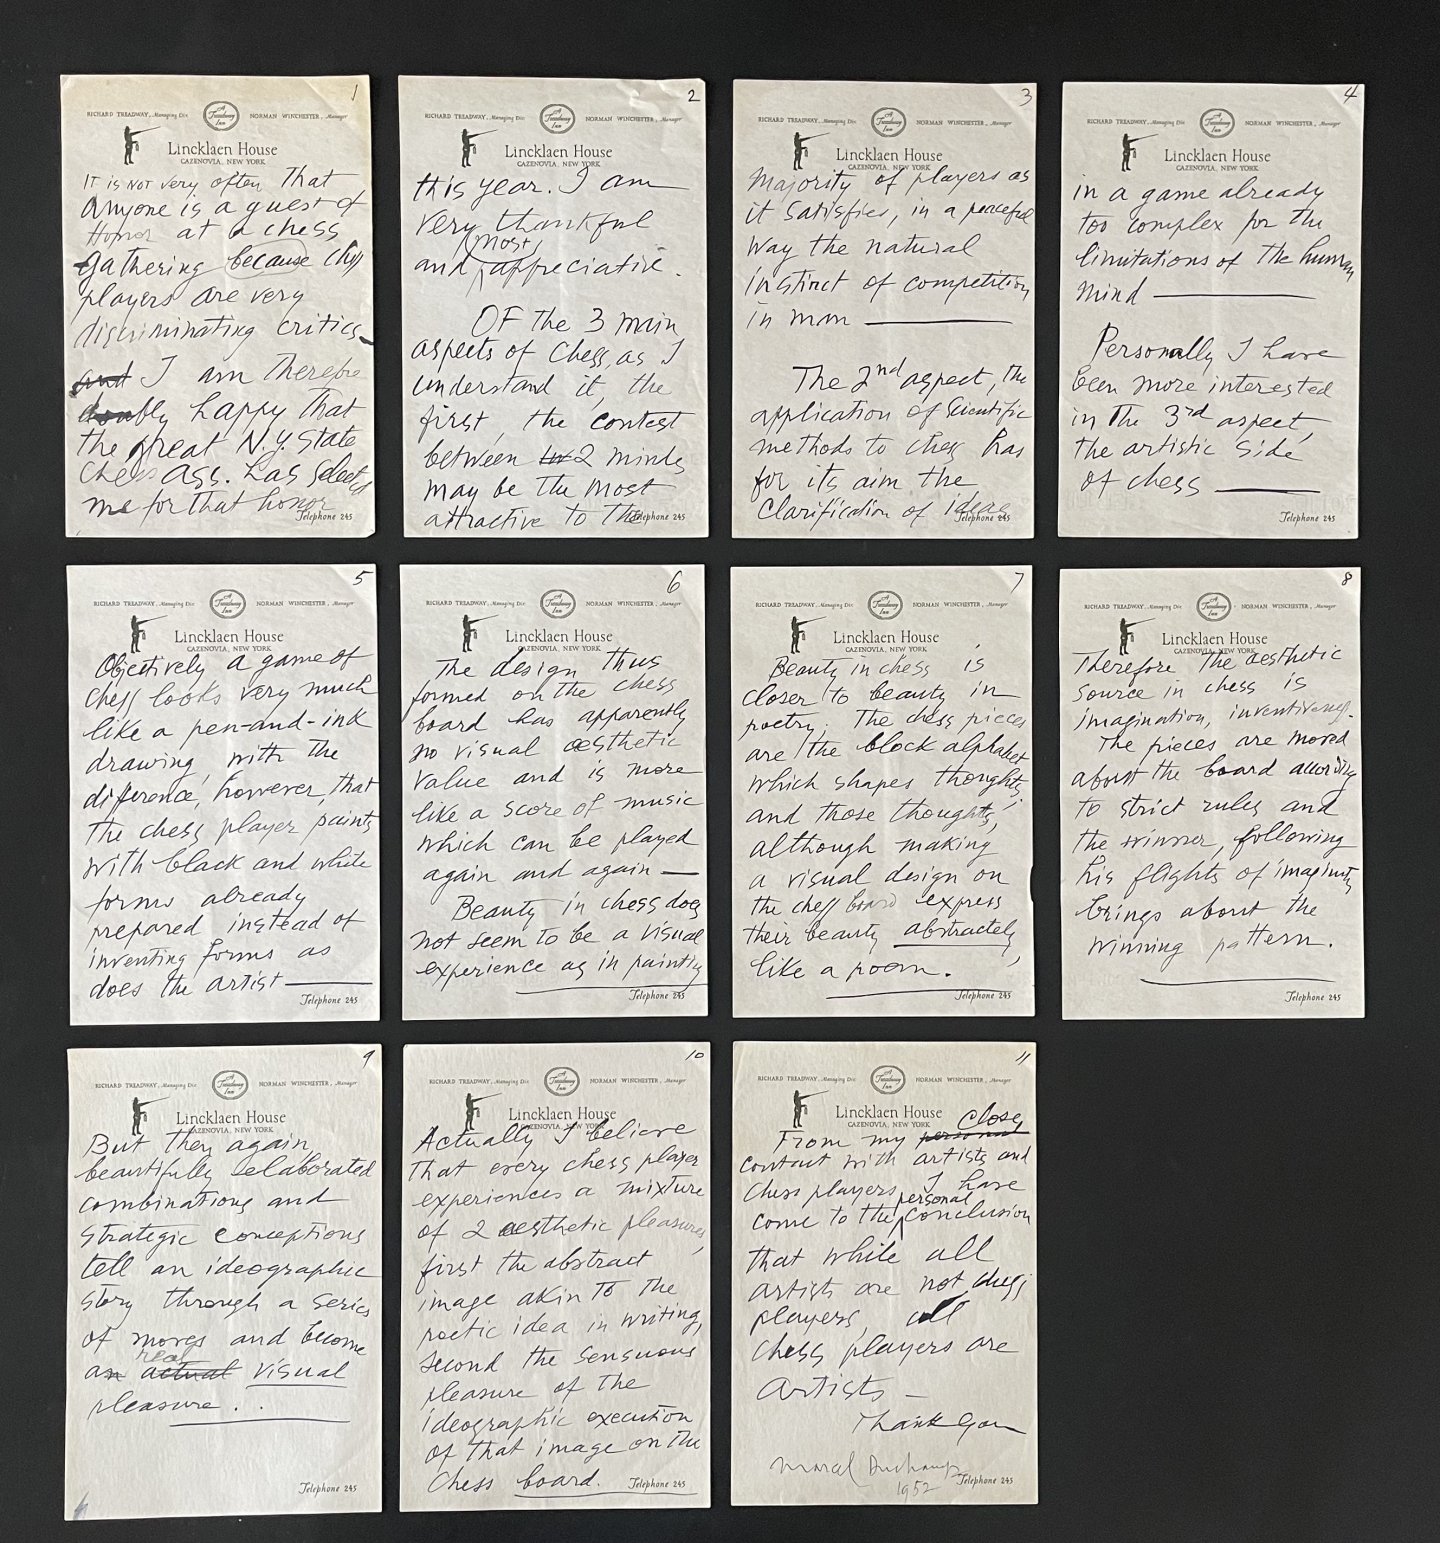 1
RICHARD TREADWAY, Managing Dir.
A Treadway Inn
NORMAN WINCHESTER, Manager
Lincklaen House
CAZENOVIA, NEW YORK
It is not very often that
anyone is a guest of
Honor at a chess
gathering because chess
players are very
discriminating critics
and I am therefore
doubly happy that
the great N.Y. State
Chess Ass. has selected
me for that honor
Telephone 245
2
RICHARD TREADWAY, Managing Dir.
A Treadway Inn
NORMAN WINCHESTER, Manager
Lincklaen House
CAZENOVIA, NEW YORK
this year. I am
very thankful
most
and appreciative.
OF the 3 main
aspects of chess, as I
understand it, the
first, the contest
between 2 minds
may be the most
attractive to the
Telephone 245
3
RICHARD TREADWAY, Managing Dir.
A Treadway Inn
NORMAN WINCHESTER, Manager
Lincklaen House
CAZENOVIA, NEW YORK
majority of players as
it satisfies, in a peaceful
way the natural
instinct of competition
in man
The 2nd aspect, the
application of scientific
methods to chess has
for its aim the
clarification of ideas
Telephone 245
4
RICHARD TREADWAY, Managing Dir.
A Treadway Inn
NORMAN WINCHESTER, Manager
Lincklaen House
CAZENOVIA, NEW YORK
in a game already
too complex for the
limitations of the human
mind
Personally I have
been more interested
in the 3rd aspect,
the artistic side
of chess
Telephone 245
5
RICHARD TREADWAY, Managing Dir.
A Treadway Inn
NORMAN WINCHESTER, Manager
Lincklaen House
CAZENOVIA, NEW YORK
Objectively a game of
chess looks very much
like a pen-and-ink
drawing, with the
difference, however, that
the chess player paints
with black and white
forms already
prepared instead of
inventing forms as
does the artist
Telephone 245
6
RICHARD TREADWAY, Managing Dir.
A Treadway Inn
NORMAN WINCHESTER, Manager
Lincklaen House
CAZENOVIA, NEW YORK
The design thus
formed on the chess
board has apparently
no visual aesthetic
value and is more
like a score of music
which can be played
again and again —
Beauty in chess does
not seem to be a visual
experience as in painting
Telephone 245
7
RICHARD TREADWAY, Managing Dir.
A Treadway Inn
NORMAN WINCHESTER, Manager
Lincklaen House
CAZENOVIA, NEW YORK
Beauty in chess is
closer to beauty in
poetry. The chess pieces
are the block alphabet
which shapes thoughts;
and those thoughts,
although making
a visual design on
the chess board express
their beauty abstractely,
like a poem.
Telephone 245
8
RICHARD TREADWAY, Managing Dir.
A Treadway Inn
NORMAN WINCHESTER, Manager
Lincklaen House
CAZENOVIA, NEW YORK
Therefore the aesthetic
source in chess is
imagination, inventiveness.
The pieces are moved
about the board according
to strict rules and
the winner, following
his flights of imagination
brings about the
winning pattern.
9
RICHARD TREADWAY, Managing Dir.
A Treadway Inn
NORMAN WINCHESTER, Manager
Lincklaen House
CAZENOVIA, NEW YORK
But then again
beautifully elaborated
combinations and
strategic conceptions
tell an ideographic
story through a series
of moves and become
real
an actual visual
pleasure..
Telephone 245
10
RICHARD TREADWAY, Managing Dir.
A Treadway Inn
NORMAN WINCHESTER, Manager
Lincklaen House
CAZENOVIA, NEW YORK
Actually I believe
that every chess player
experiences a mixture
of 2 aesthetic pleasures,
first the abstract
image akin to the
poetic idea in writing,
second the sensuous
pleasure of the
ideographic execution
of that image on the
chess board.
Telephone 245
11
RICHARD TREADWAY, Managing Dir.
A Treadway Inn
NORMAN WINCHESTER, Manager
Lincklaen House
CAZENOVIA, NEW YORK
close
From my personal
contact with artists and
chess players, I have
personal
come to the conclusion
that while all
artists are not chess
players, all
chess players are
artists —
Thank you
Marcel Duchamp
1952
Telephone 245